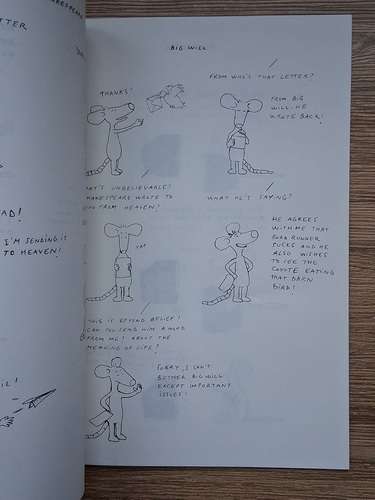 TTER
BIG WILL
FROM WHO'S THAT LETTER?
THANKS!
FROM BIG
WILL. HE
WROTE BACK!
THAT'S UNBELIEVABLE!
SHAKESPEARE WROTE TO
YOU FROM HEAVEN?
YAP
WHAT HE'S SAYING?
HE AGREES
WITH ME THAT
ROAD RUNNER
SUCKS AND HE
ALSO WISHES
TO SEE THE
COYOTE EATING
THAT DARN
BIRD!
AD!
I'M SENDING IT
TO HEAVEN!
THIS IS BEYOND BELIEF!
CAN YOU SEND HIM A WORD
FROM ME? ABOUT THE
MEANING OF LIFE?
SORRY, I CAN'T
BOTHER BIG WILL
EXCEPT IMPORTANT
ISSUES!